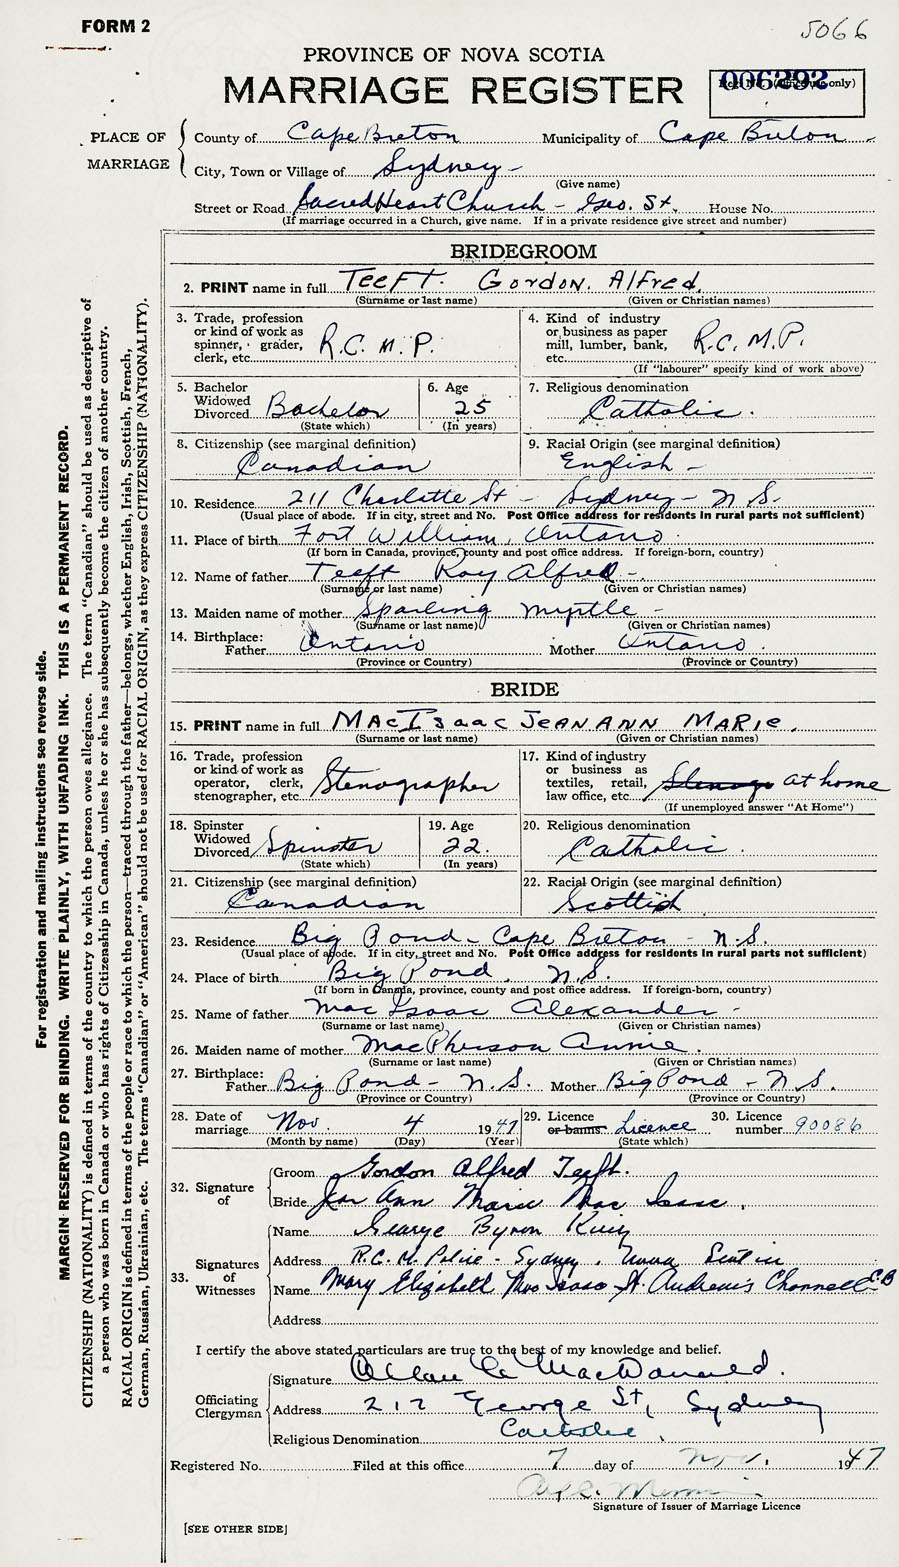 FORM 2
5066
PROVINCE OF NOVA SCOTIA
MARRIAGE REGISTER
006393
Regt. No. (Office use only)
PLACE OF MARRIAGE
County of Cape Breton Municipality of Cape Breton -
City, Town or Village of Sydney -
(Give name)
Street or Road Sacred Heart Church - Geo. St. House No.
(If marriage occurred in a Church, give name. If in a private residence give street and number)
BRIDEGROOM
2. PRINT name in full TeeFT. GORDON. AlFred.
(Surname or last name) (Given or Christian names)
3. Trade, profession or kind of work as spinner, grader, clerk, etc. R.C.M.P.
4. Kind of industry or business as paper mill, lumber, bank, etc. R.C.M.P.
(If "labourer" specify kind of work above)
5. Bachelor Widowed Divorced Bachelor
(State which)
6. Age 25
(In years)
7. Religious denomination Catholic.
8. Citizenship (see marginal definition) Canadian
9. Racial Origin (see marginal definition) English -
10. Residence 211 Charlotte St - Sydney - N.S.
(Usual place of abode. If in city, street and No. Post Office address for residents in rural parts not sufficient)
11. Place of birth Fort William, Ontario.
(If born in Canada, province, county and post office address. If foreign-born, country)
12. Name of father Teeft Roy Alfred -
(Surname or last name) (Given or Christian names)
13. Maiden name of mother Sparling Myrtle -
(Surname or last name) (Given or Christian names)
14. Birthplace:
Father Ontario Mother Ontario.
(Province or Country) (Province or Country)
BRIDE
15. PRINT name in full MacIsaac JeanAnn Marie.
(Surname or last name) (Given or Christian names)
16. Trade, profession or kind of work as operator, clerk, stenographer, etc. Stenographer
17. Kind of industry or business as textiles, retail, law office, etc. Stenogr At home
(If unemployed answer "At Home")
18. Spinster Widowed Divorced Spinster
(State which)
19. Age 22.
(In years)
20. Religious denomination Catholic.
21. Citizenship (see marginal definition) Canadian
22. Racial Origin (see marginal definition) Scottish
23. Residence Big Pond - Cape Breton - N.S.
(Usual place of abode. If in city, street and No. Post Office address for residents in rural parts not sufficient)
24. Place of birth Big Pond, N.S.
(If born in Canada, province, county and post office address. If foreign-born, country)
25. Name of father MacIsaac Alexander -
(Surname or last name) (Given or Christian names)
26. Maiden name of mother MacPherson Annie.
(Surname or last name) (Given or Christian names)
27. Birthplace:
Father Big Pond - N.S. Mother Big Pond - N.S.
(Province or Country) (Province or Country)
28. Date of marriage Nov. 4 1947
(Month by name) (Day) (Year)
29. Licence or banns Licence
(State which)
30. Licence number 90086
32. Signature of
Groom Gordon Alfred Teeft.
Bride Jean Ann Marie MacIsaac.
33. Signatures of Witnesses
Name George Byron King
Address R.C.M. Police - Sydney, Nova Scotia
Name Mary Elizabeth MacIsaac St. Andrew's Channel C.B
Address
I certify the above stated particulars are true to the best of my knowledge and belief.
Officiating Clergyman
Signature Allan MacDonald.
Address 212 George St, Sydney
Religious Denomination Catholic.
Registered No. Filed at this office 7 day of Nov. 1947
Signature of Issuer of Marriage Licence
[SEE OTHER SIDE]
For registration and mailing instructions see reverse side.
MARGIN RESERVED FOR BINDING. WRITE PLAINLY, WITH UNFADING INK. THIS IS A PERMANENT RECORD.
CITIZENSHIP (NATIONALITY) is defined in terms of the country to which the person owes allegiance. The term "Canadian" should be used as descriptive of
a person who was born in Canada or who has rights of Citizenship in Canada, unless he or she has subsequently become the citizen of another country.
RACIAL ORIGIN is defined in terms of the people or race to which the person—traced through the father—belongs, whether English, Irish, Scottish, French,
German, Russian, Ukrainian, etc. The terms "Canadian" or "American" should not be used for RACIAL ORIGIN, as they express CITIZENSHIP (NATIONALITY).